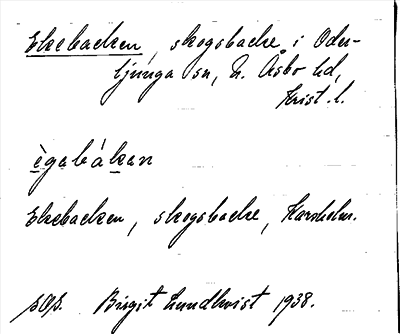 Ekebacken, skogsbacke i Oder-
ljunga sn, N. Åsbo hd,
Krist. l.
ègabákan
Ekebacken, skogsbacke, Karsholm.
Birgit Lundkvist 1938.